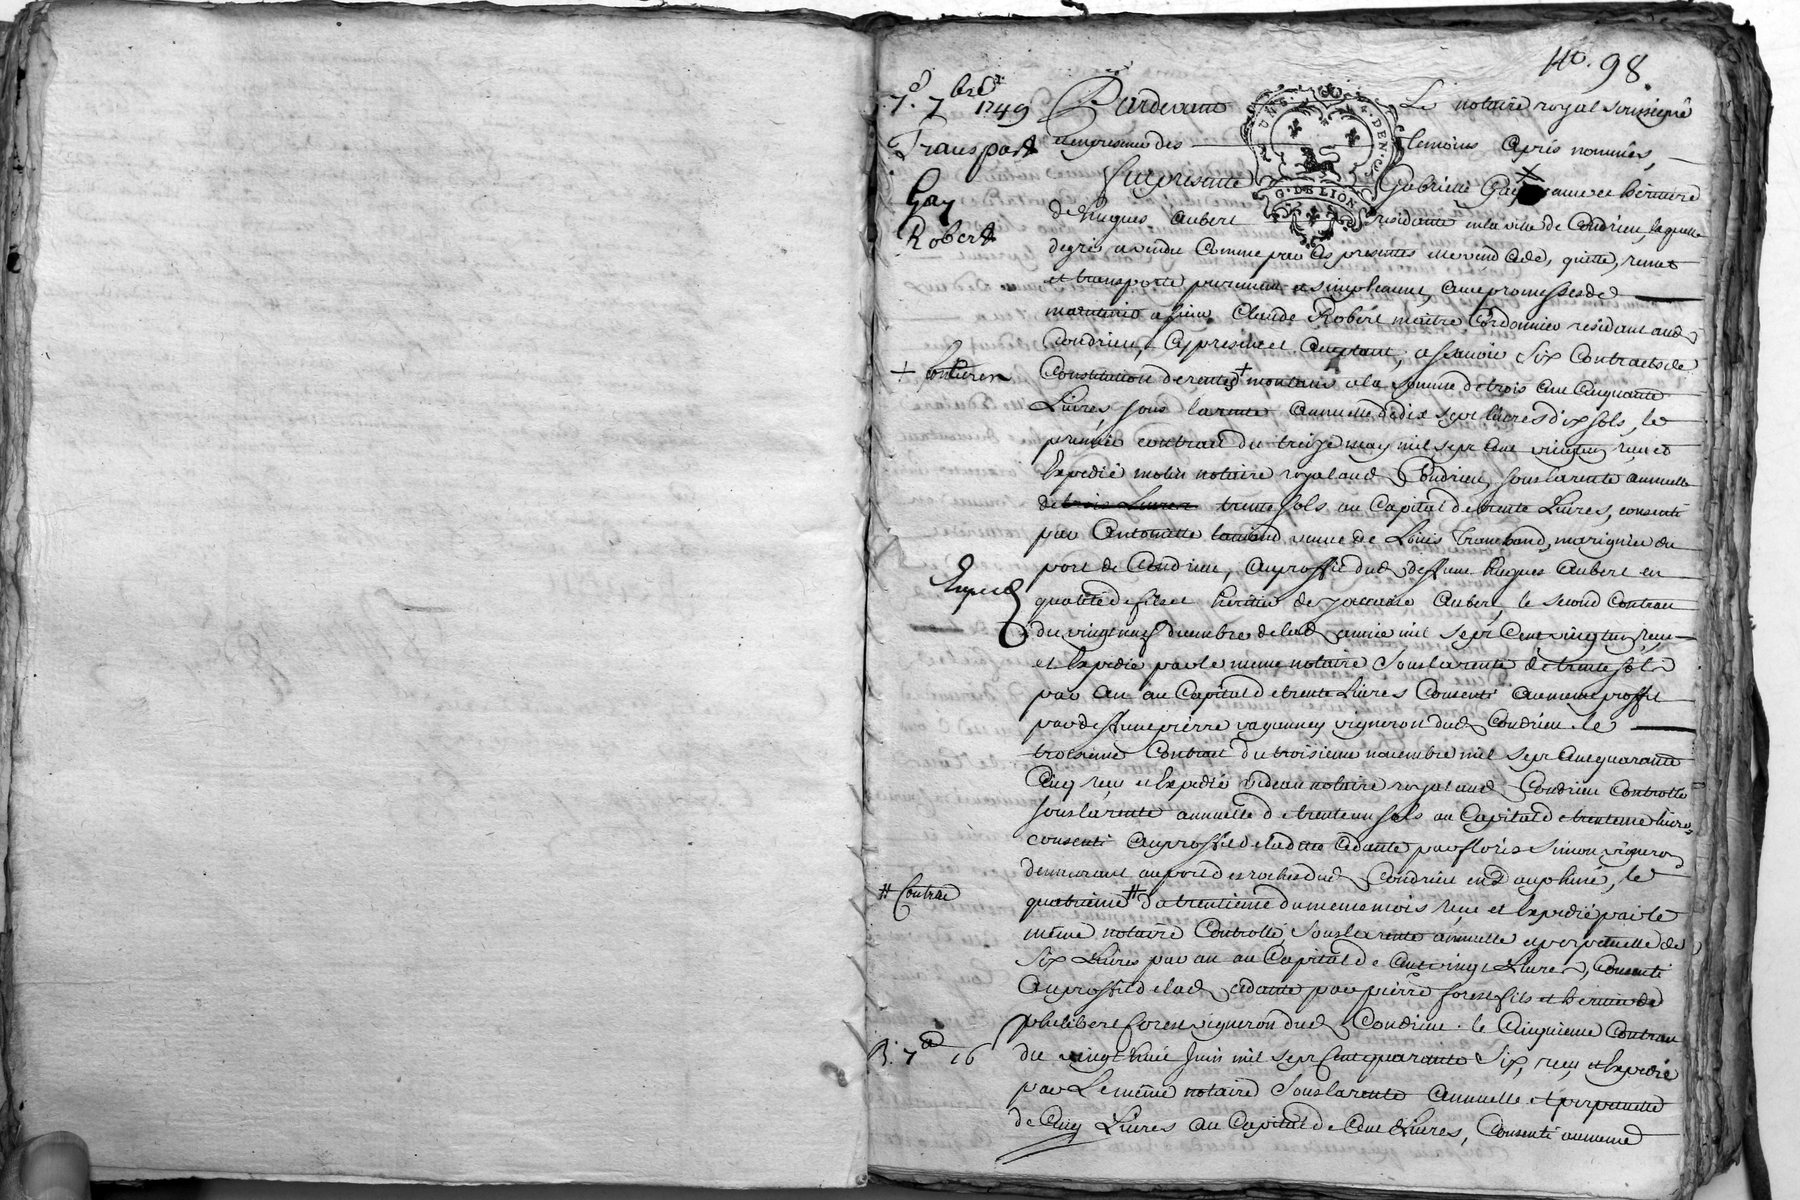 98
7e 7bre 1749
Transport
Gay
Robert
Pardevant Le notaire royal soussigné
et en presence des temoins apres nommés,
fut presente Gabrielle Gay veuve et héritière
de hugues aubert residante en la ville de Condrieu, laquelle
de gré a vendu Comme par ces presentes elle vend cede, quitte, remet
et transporte purement et simplement, avec promesses de
maintenir a sieur Claude Robert maitre Cordonnier residant aud
Condrieu, cy present et acceptant, a scavoir Six Contracts de
+ Constitution de rentes + montants a la somme de trois cent cinquante
Livres, sous la rente annuelle de dix sept livres dix sols, le
premier contract du treize may mil sept cent vingt reçu et
Expedié molin notaire royal aud Condrieu, sous la rente annuelle
de trois Livres trente sols au Capital de trente Livres, consenti
par Antoinette veuve de Louis marignier du
port de Condrieu, au proffit dud deffunt hugues Aubert en
Exped
qualité de fils et héritier de Aubert, le second Contract
du vingt neuf decembre de lad année mil sept Cent vingt reçu
et Expedié par le meme notaire sous la rente de trente sols
par an au Capital de trente Livres Consenti au meme proffit
par deffunt pierre vaganney vigneron dud Condrieu. le
troisieme Contract du troisieme novembre mil sept cent quarante
Cinq reçu et Expedié notaire royal aud Condrieu Controllé
sous la rente annuelle de trente un sols au Capital de trente une livres
consenti au proffit de ladite cedante par floris Simon vigneron
demeurant au port des roches dud Condrieu en Dauphiné, le
# Contract
quatrieme # du trentieme du meme mois reçu et Expedié par le
même notaire Controllé, sous la rente annuelle et perpetuelle de
Six Livres par an au Capital de Cent vingt Livres, Consenti
au proffit de lad cedante par pierre forest fils et héritier de
philibert forest vigneron dud Condrieu. le Cinquieme Contract
du vingt huit Juin mil sept Cent quarante Six, reçu et Expedié
par Le même notaire sous la rente Annuelle et perpetuelle
de Cinq Livres au Capital de Cent Livres, Consenti au meme